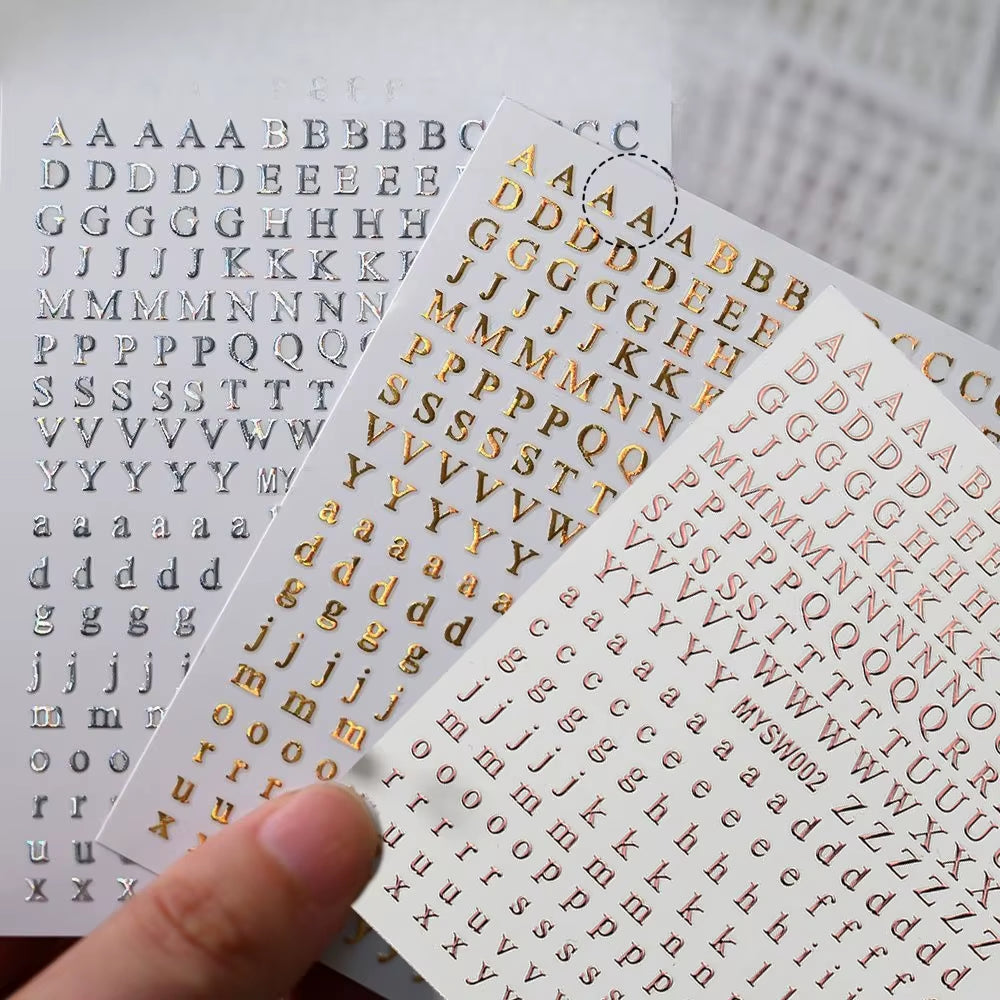 A A A A A B B B B B C C C
D D D D D E E E E E
G G G G G H H H H
J J J J J K K K K
M M M M M N N N N
P P P P P Q Q Q
S S S S S T T T
V V V V V W W
Y Y Y Y Y MY
a a a a a
d d d d d
g g g g
j j j j j
m m
o o o
r r
u u
x x x
A A A A A B B B C C C
D D D D D E E E
G G G G G H H
J J J J K K K
M M M M M N N
P P P P P Q Q
S S S S S T T
V V V V V W
Y Y Y Y Y
a a a a a a
d d d d d
g g g g
j j j j j
m m m
o o o o
r r r
u u
x
A A A A A B
D D D D D E E E
G G G G G H H H
J J J J J K K K K
M M M M M N N N N O
P P P P P Q Q Q Q R R
S S S S S T T T T U U U
V V V V V W W W W W X X X
Y Y Y Y Y MYSW002 Z Z Z Z Z
a a a a a a a a d d d d d
c c c c c e e e e e f f f
g g g g g h h h h h i i
j j j j j k k k k k l
m m m m m n n
o o o o p p p p
r r r r s s s s
u u u u v v
x x x y y